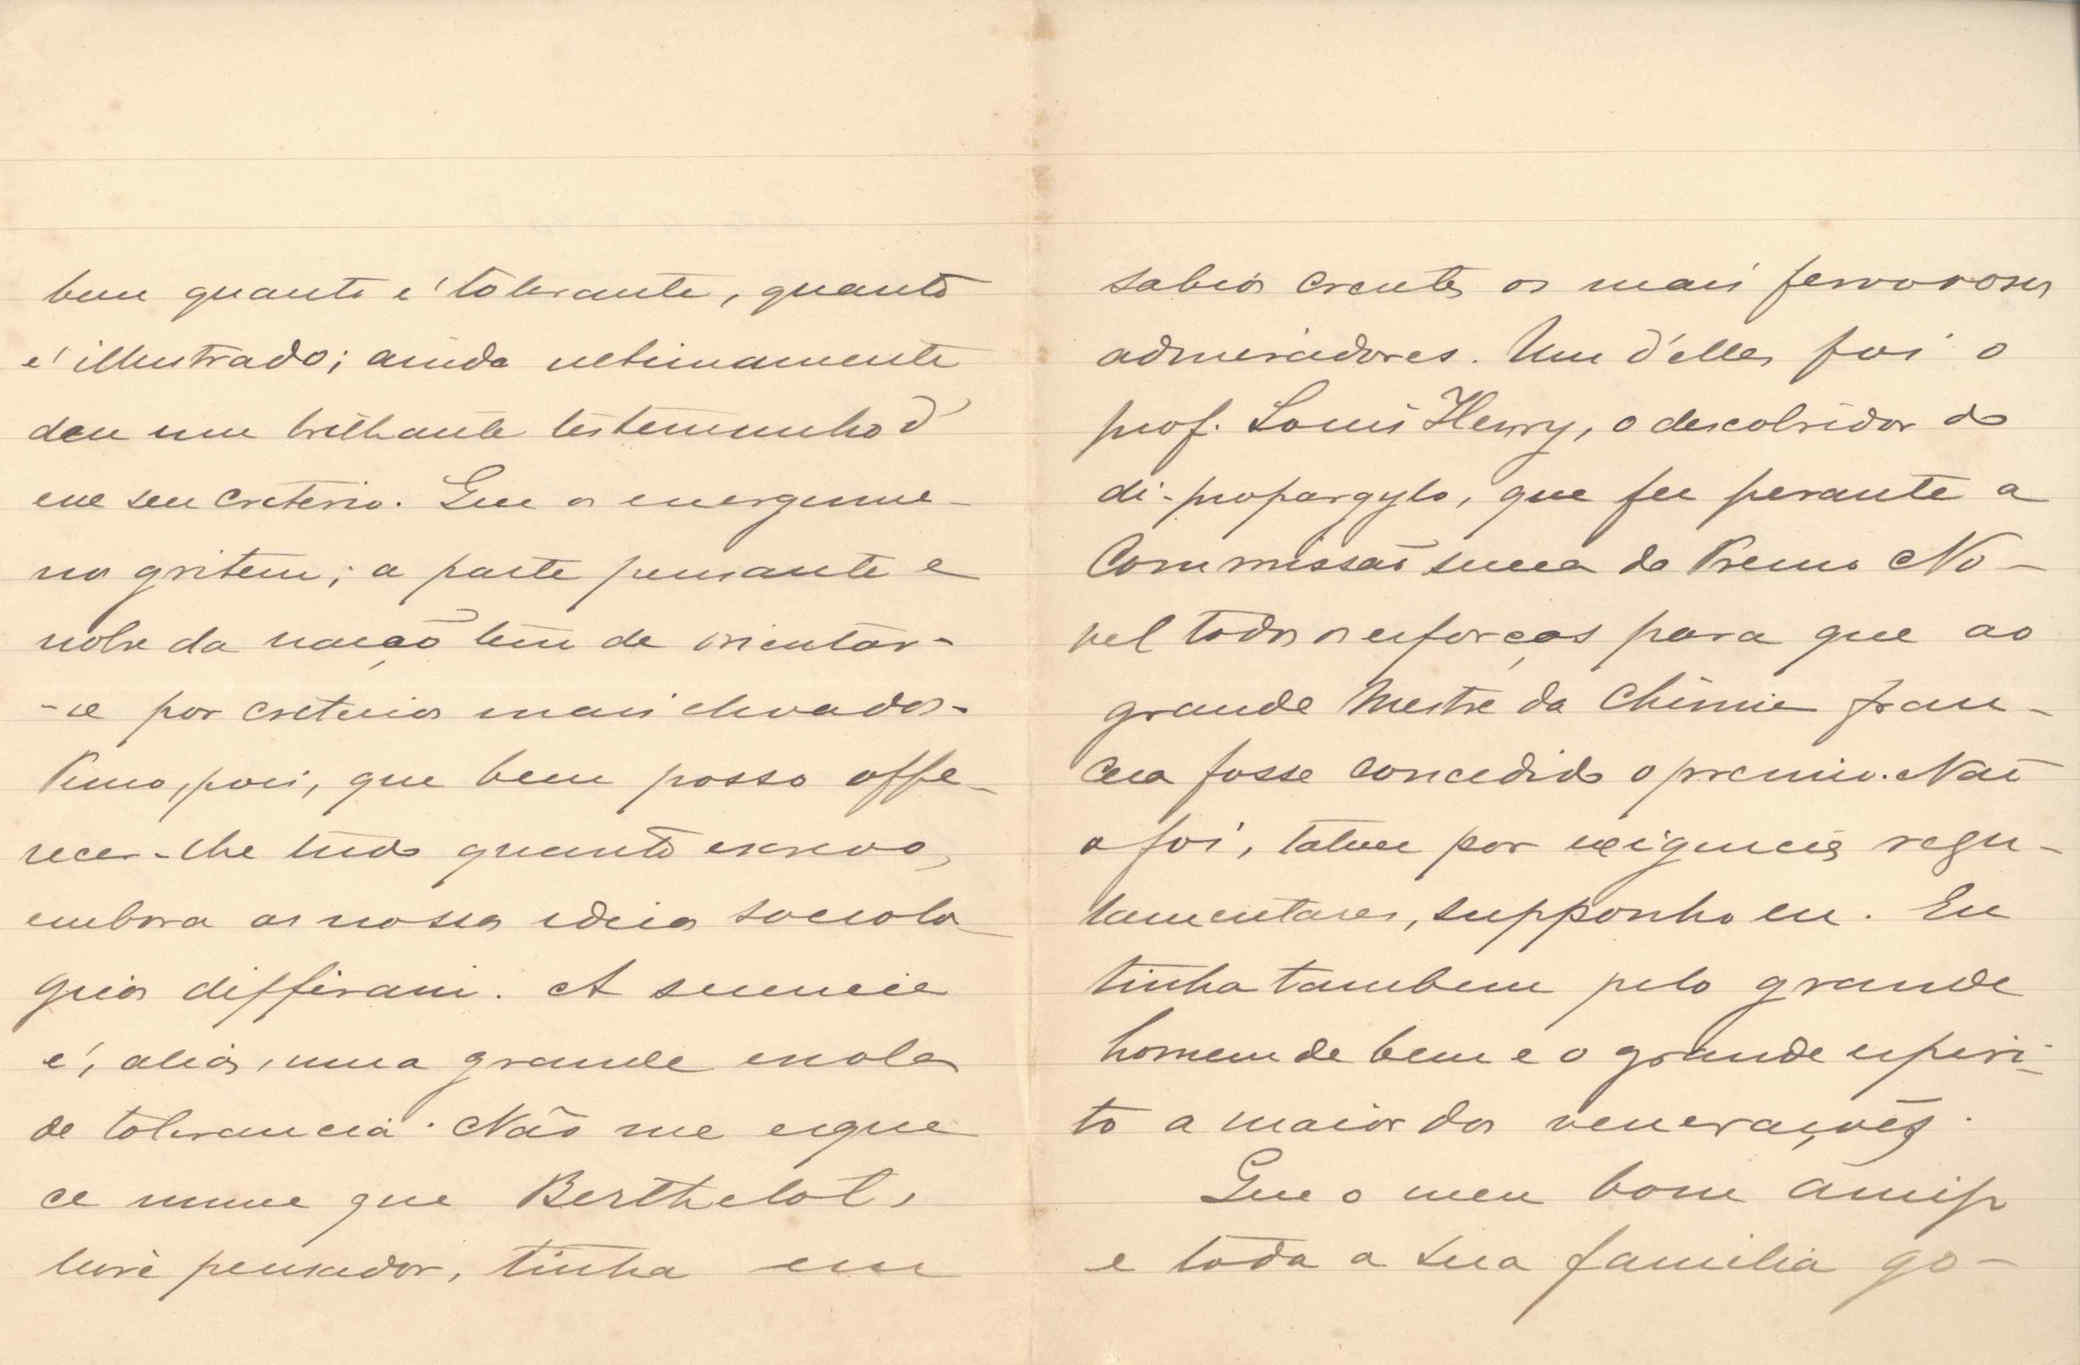 bem quanto é tolerante, quanto
é illustrado; ainda ultimamente
deu um brilhante testemunho d'
esse seu criterio. Que os energume-
nos gritem; a parte pensante e
nobre da nação tem de orientar-
-se por criterios mais elevados.
Penso, pois, que bem posso offe-
recer-lhe tudo quanto escrevo,
embora as nossas ideias sociolo-
gicas differam. A sciencia
é, aliás, uma grande escola
de tolerancia. Não me esque
ce nunca que Berthelot,
livre pensador, tinha em
sabios crentes os mais fervorosos
admiradores. Um d'elles foi o
prof. Louis Henry, o descobridor do
di-propargylo, que fez perante a
Commissão sueca do Premio No-
bel todos os esforços para que ao
grande Mestre da Chimie fran-
ceza fosse concedido o premio. Não
o foi, talvez por exigencias regu-
lamentares, supponho eu. Eu
tinha tambem pelo grande
homem de bem e o grande espiri-
to a maior das venerações.
Que o meu bom amigo
e toda a sua familia go-